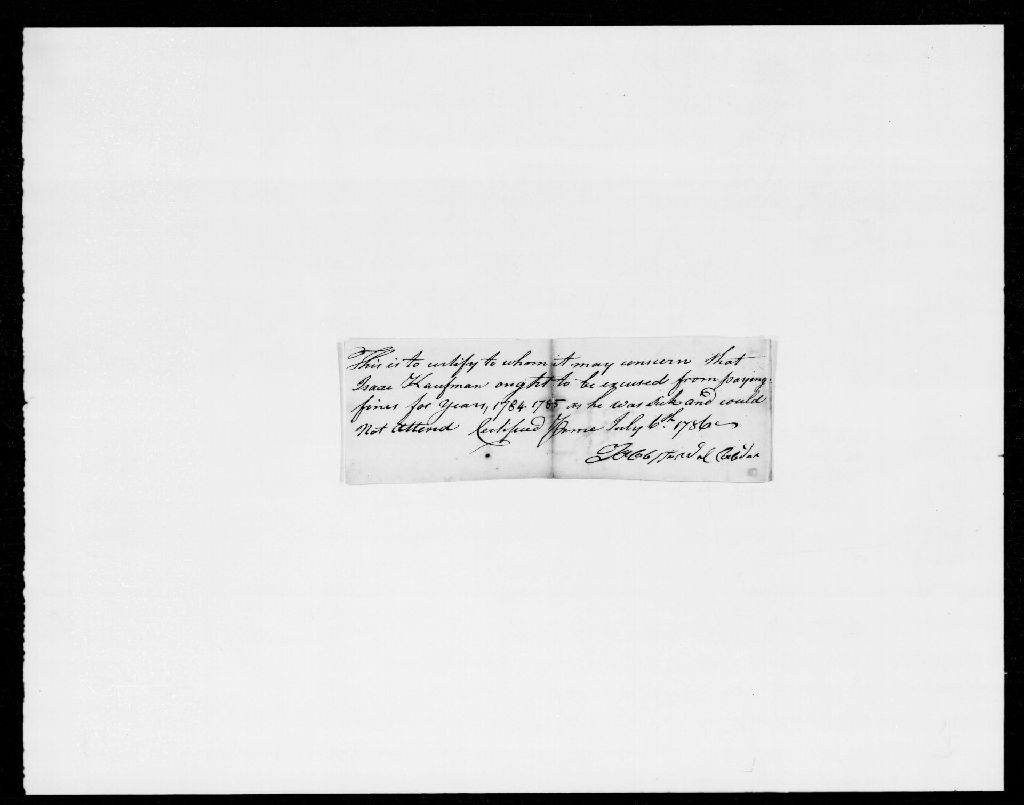 This is to certify to whom it may concern that
Isaac Kaufman ought to be excused from paying
fines for Years, 1784. 1785 as he was sick and could
Not Attend Certified Pr me July 6th. 1786